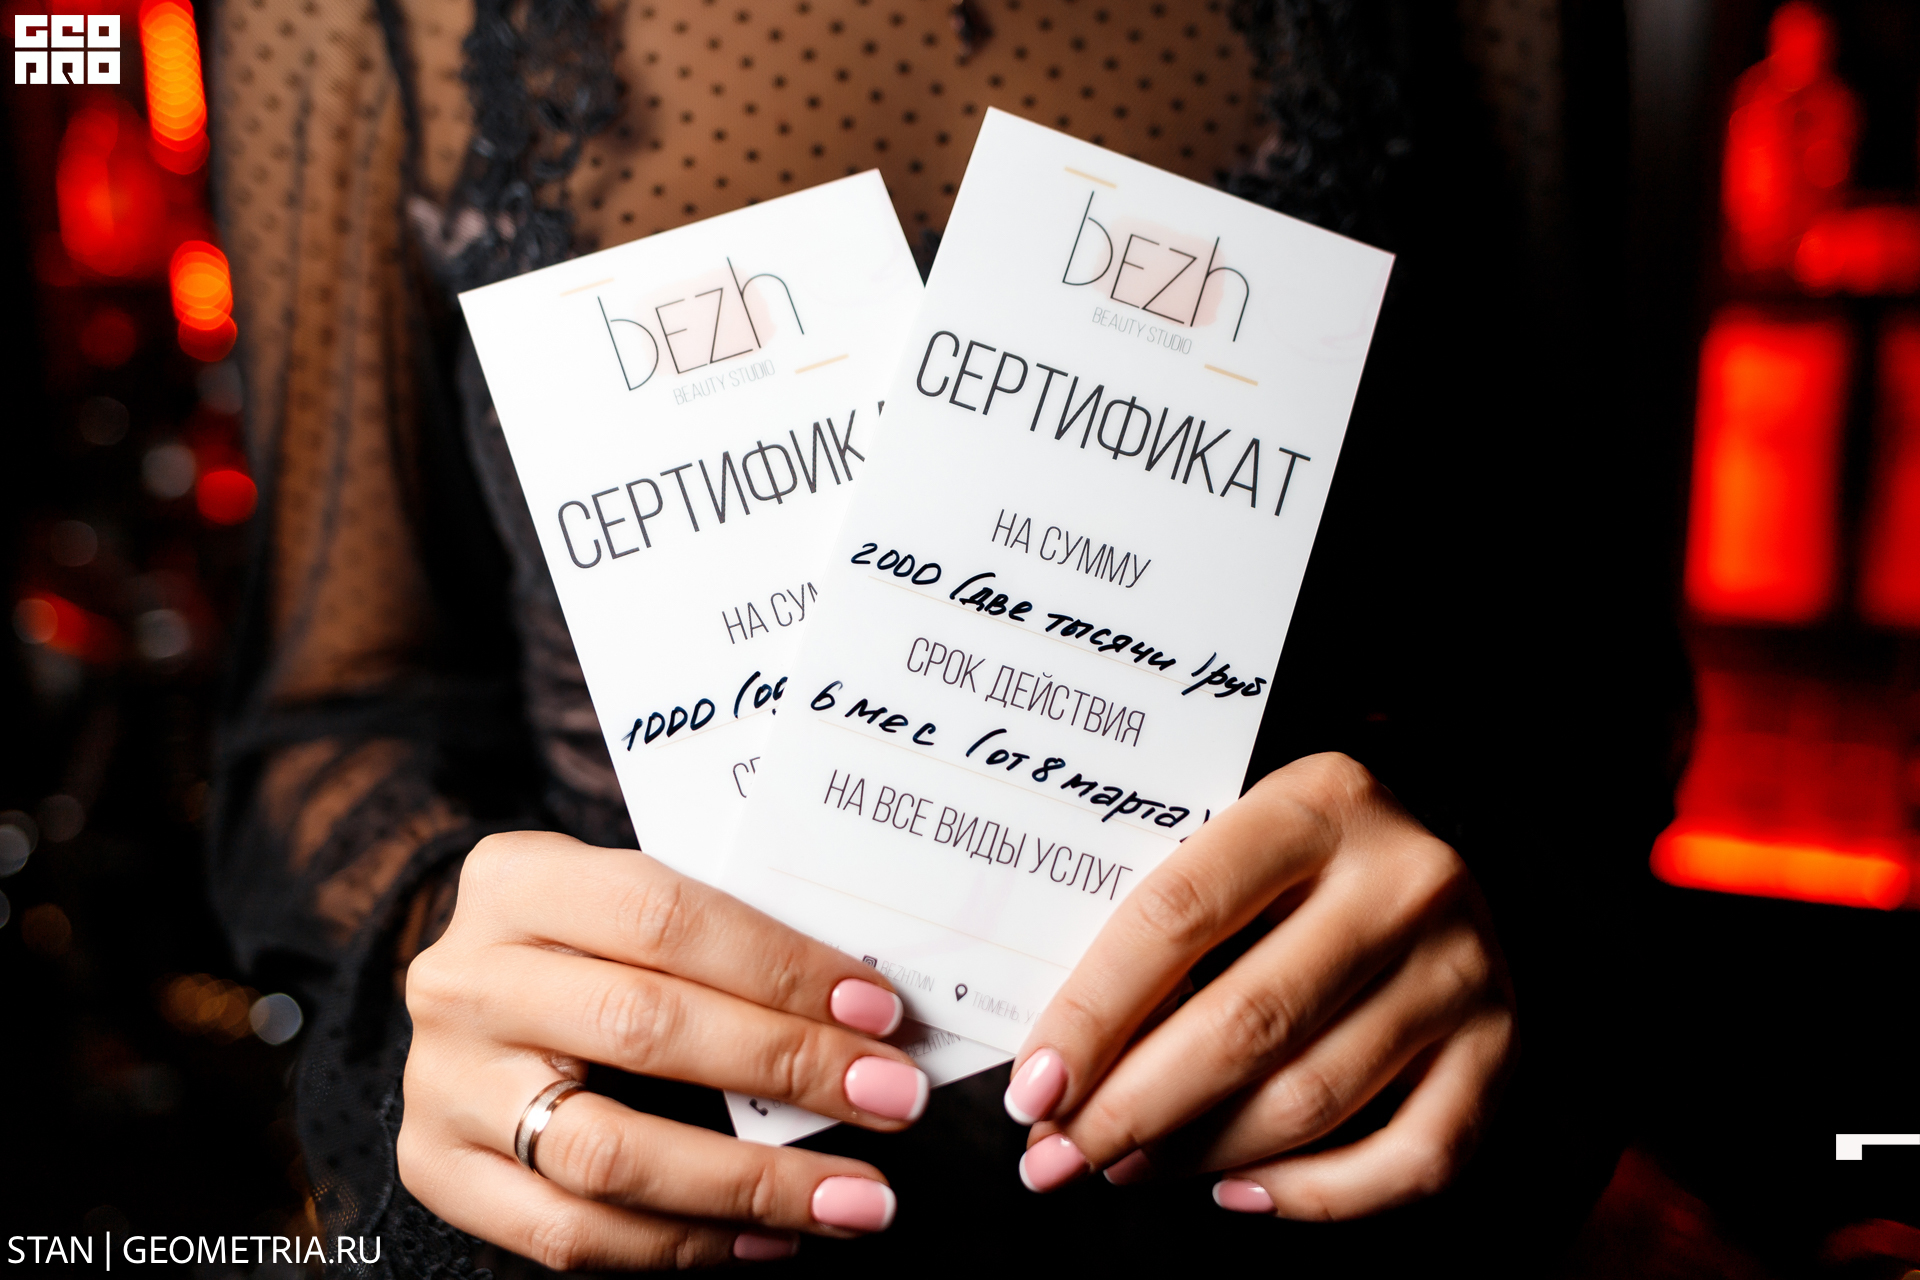 GEO
PRO
bEzh
BEAUTY STUDIO
СЕРТИФИК
НА СУМ
1000 (од
bEzh
BEAUTY STUDIO
СЕРТИФИКАТ
НА СУММУ
2000 (две тысячи) руб
СРОК ДЕЙСТВИЯ
6 мес (от 8 марта)
НА ВСЕ ВИДЫ УСЛУГ
BEZHTMN
ТЮМЕНЬ, УЛ
BEZHTMN
STAN | GEOMETRIA.RU